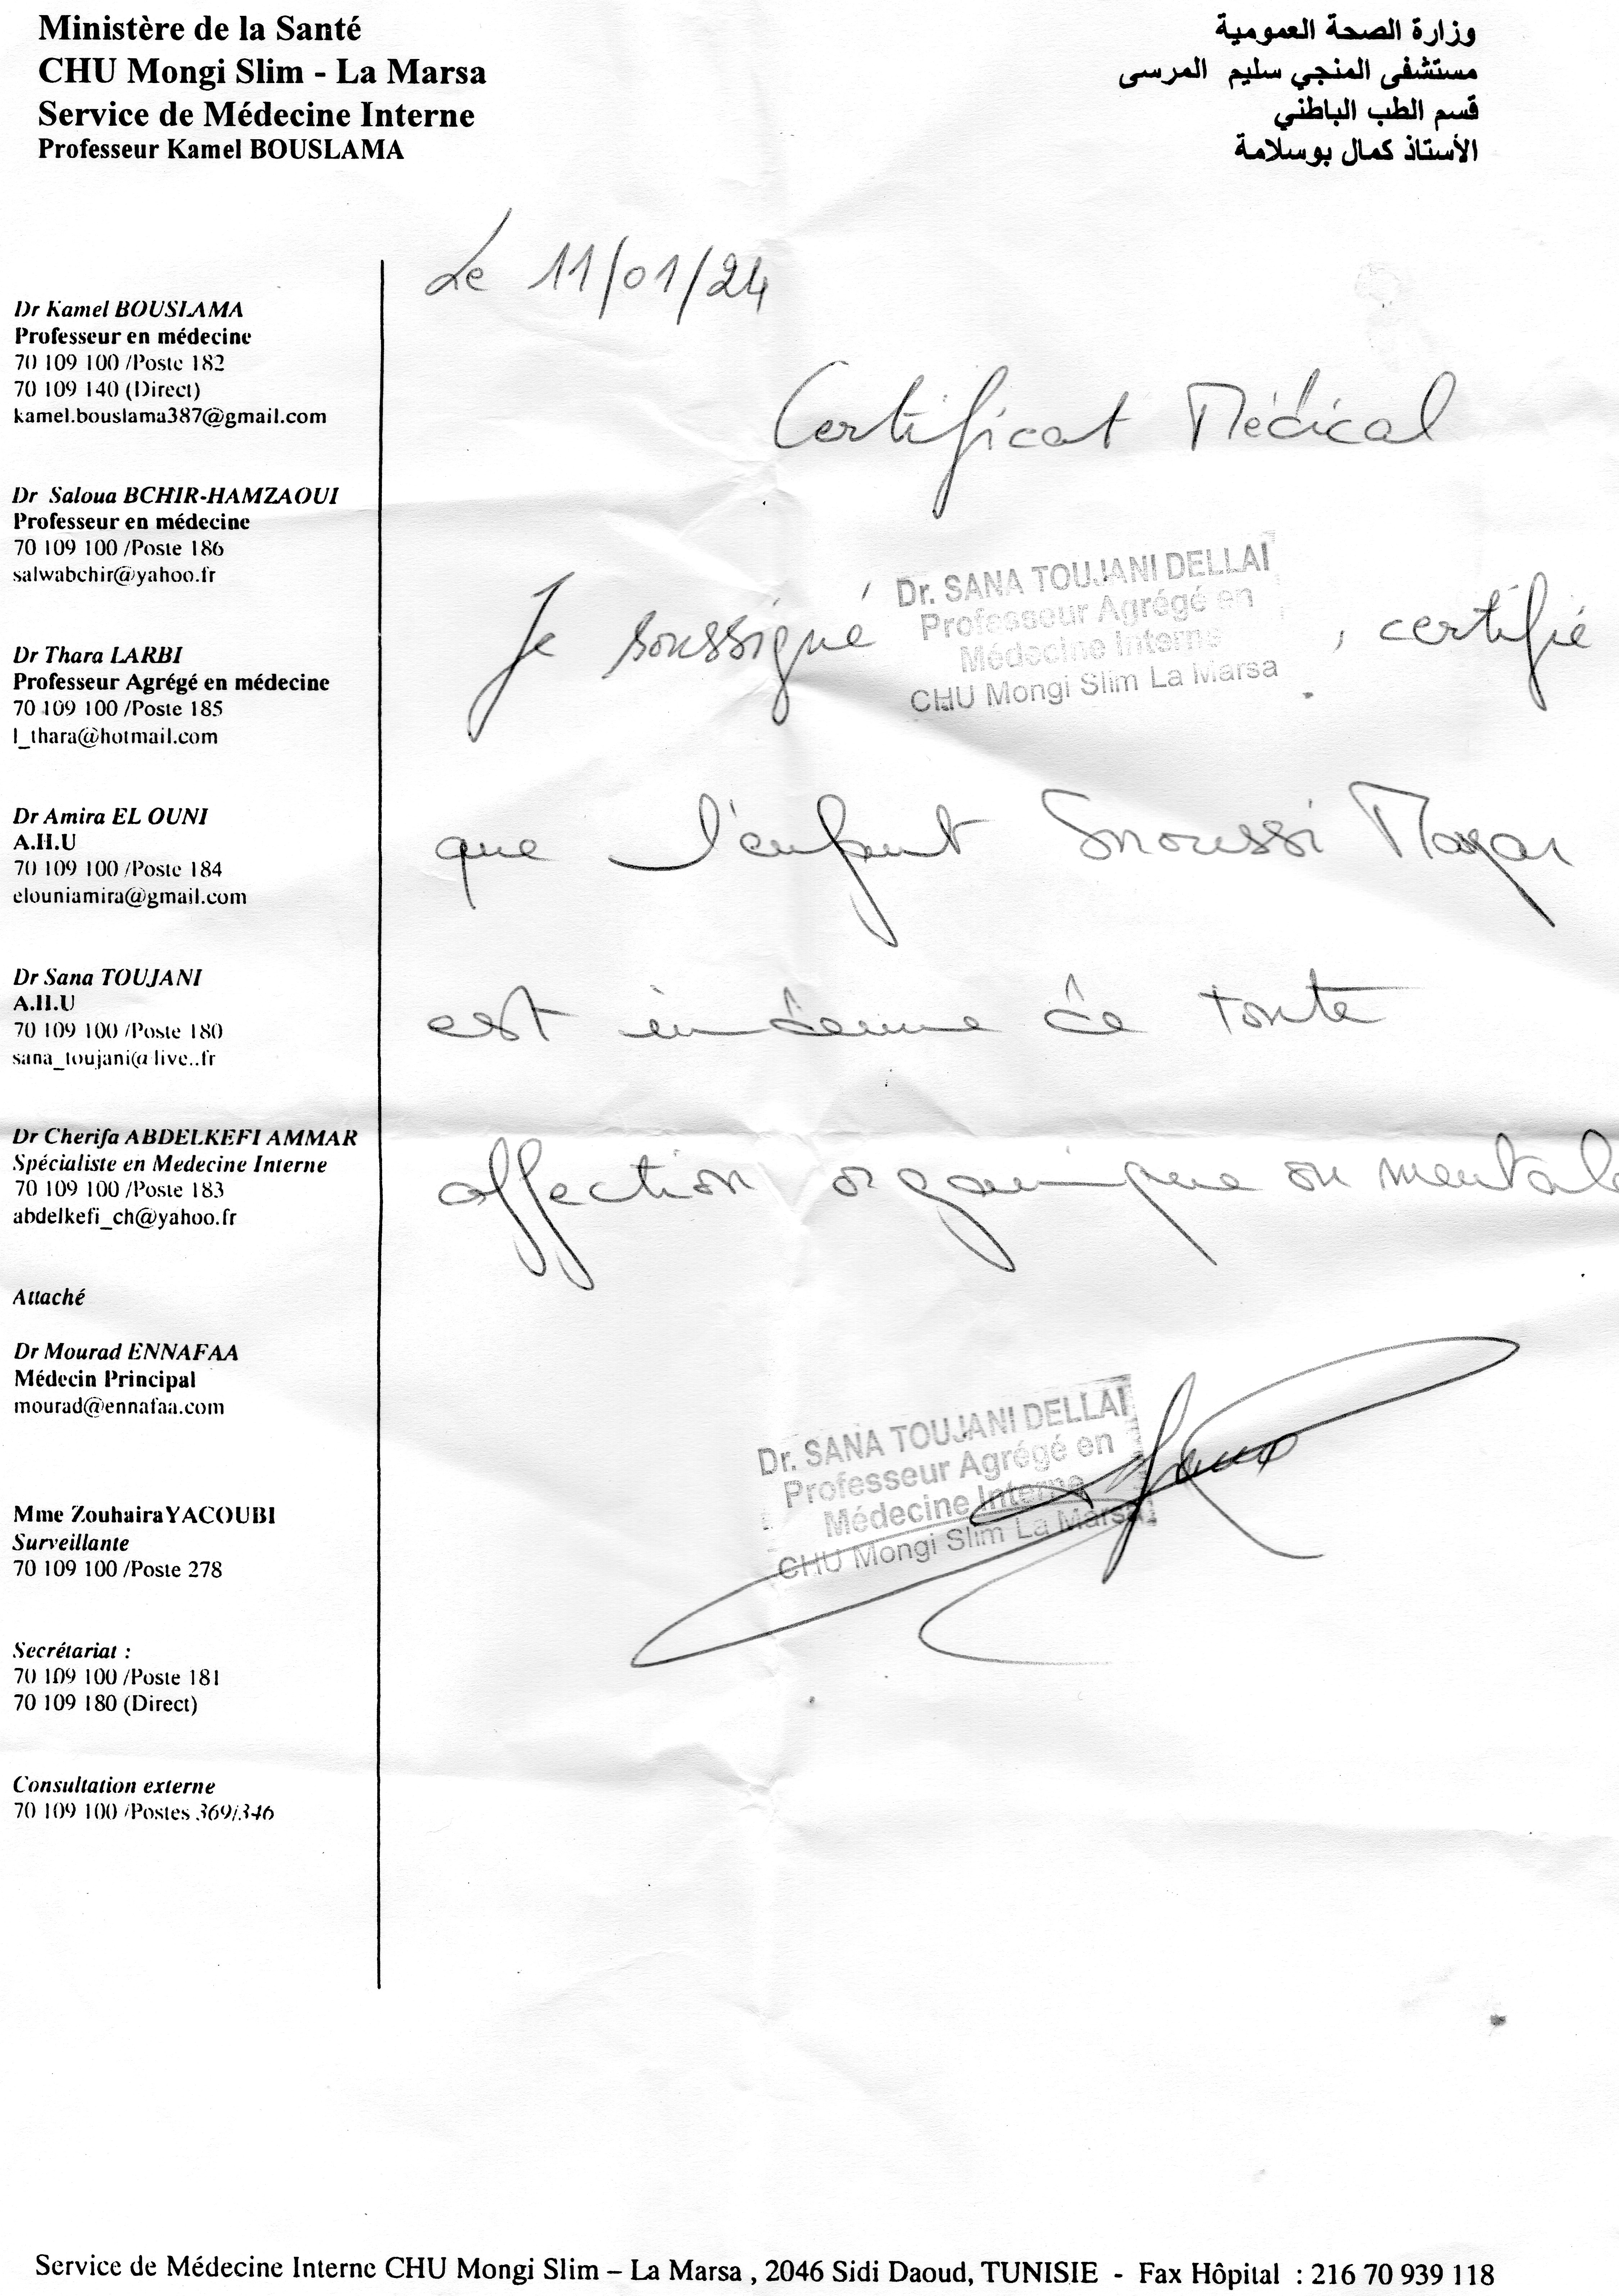 Ministère de la Santé
CHU Mongi Slim - La Marsa
Service de Médecine Interne
Professeur Kamel BOUSLAMA
وزارة الصحة العمومية
مستشفى المنجي سليم المرسى
قسم الطب الباطني
الأستاذ كمال بوسلامة
Dr Kamel BOUSLAMA
Professeur en médecine
70 109 100 /Poste 182
70 109 140 (Direct)
kamel.bouslama387@gmail.com
Dr Saloua BCHIR-HAMZAOUI
Professeur en médecine
70 109 100 /Poste 186
salwabchir@yahoo.fr
Dr Thara LARBI
Professeur Agrégé en médecine
70 109 100 /Poste 185
l_thara@hotmail.com
Dr Amira EL OUNI
A.H.U
70 109 100 /Poste 184
elouniamira@gmail.com
Dr Sana TOUJANI
A.H.U
70 109 100 /Poste 180
sana_toujani@live..fr
Dr Cherifa ABDELKEFI AMMAR
Spécialiste en Medecine Interne
70 109 100 /Poste 183
abdelkefi_ch@yahoo.fr
Attaché
Dr Mourad ENNAFAA
Médecin Principal
mourad@ennafaa.com
Mme Zouhaira YACOUBI
Surveillante
70 109 100 /Poste 278
Secrétariat :
70 109 100 /Poste 181
70 109 180 (Direct)
Consultation externe
70 109 100 /Postes 369/346
Le 11/01/24
Certificat Médical
Je soussigné
Dr. SANA TOUJANI DELLAI
Professeur Agrégé en
Médecine Interne
CHU Mongi Slim La Marsa
, certifie
que l'enfant Snoussi Mayar
est indemne de toute
affection organique ou mentale
Dr. SANA TOUJANI DELLAI
Professeur Agrégé en
Médecine Interne
CHU Mongi Slim La Marsa
Service de Médecine Interne CHU Mongi Slim – La Marsa , 2046 Sidi Daoud, TUNISIE - Fax Hôpital : 216 70 939 118